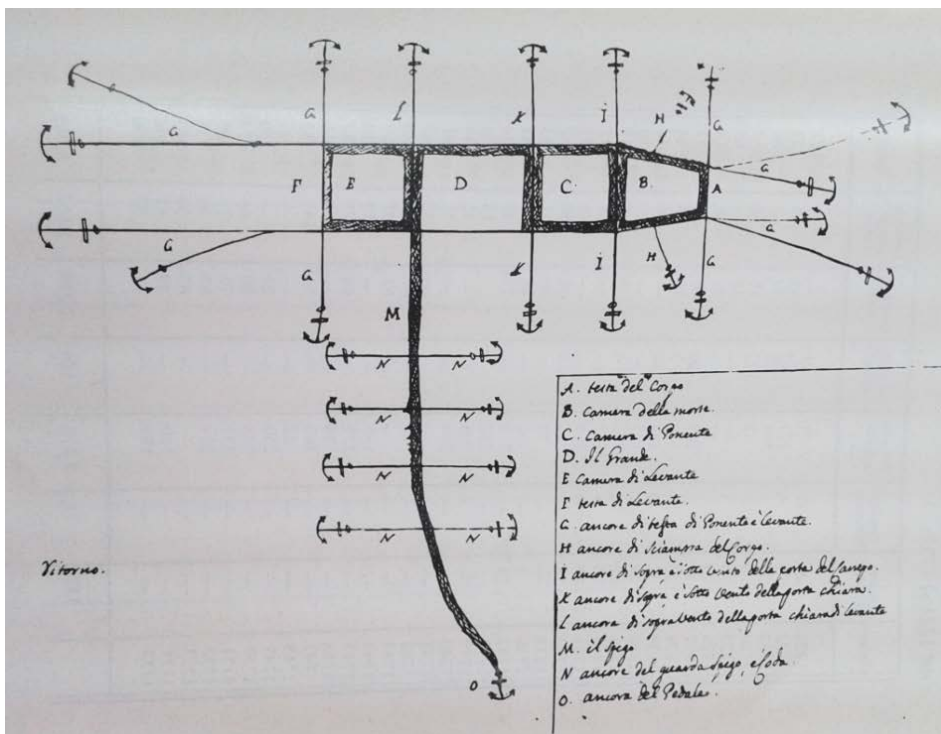 G L K I H G
G G
F E D C B A G
G G K I H G G
M
N N
N N
N N
N N
O
A. testa del Corpo
B. Camera della morte
C. Camera di Ponente
D. Il Grande
E Camera di Levante
F testa di Levante.
G ancore di testa di Ponente è levante.
H ancore di del Corpo.
I ancore di sopra è sotto vento della porta del
K ancore di sopra è sotto vento della porta chiara.
L ancora di sopravento della porta chiara di levante
M. il Spigo
N ancore del guarda Spigo, è Coda.
O. ancora del Pedale.